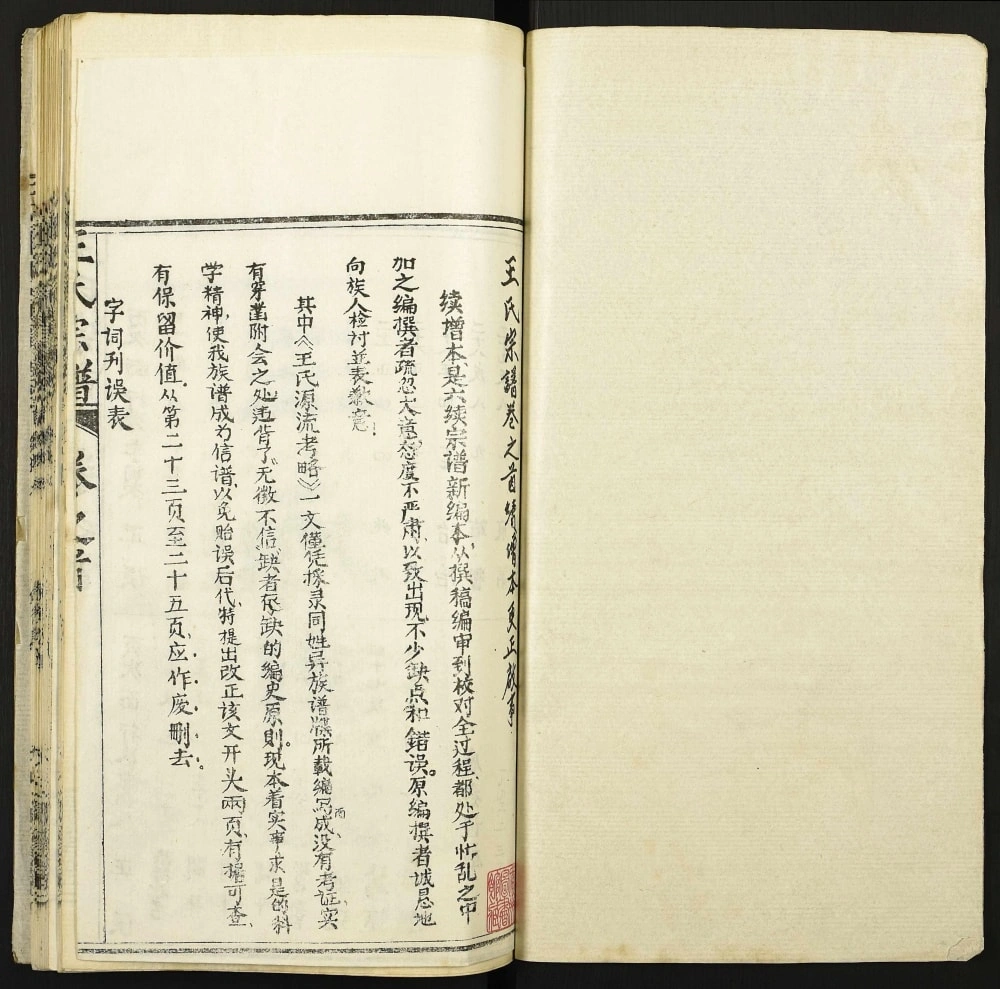 王氏宗譜卷之首续增本更正啟事
续增本是六续宗谱新编本,从撰稿编审到校对全过程都处于忙乱之中
加之编撰者疏忽大意态度不严肃,以致出现不少缺点和錯误。原编撰者诚恳地
向族人检讨並表歉意!
其中《王氏源流考略》一文僅凭據录同姓异族谱牒所载编写而成没有考证,实
有穿凿附会之处,违背了“无徵不信”“缺者存缺”的编史原则。现本着实事求是的科
学精神,使我族谱成为信谱,以免贻误后代,特提出改正该文开头兩页,有據可查、
有保留价值,从第二十三页至二十五页,应作废删去。
字词刋误表
王氏宗譜 卷之首